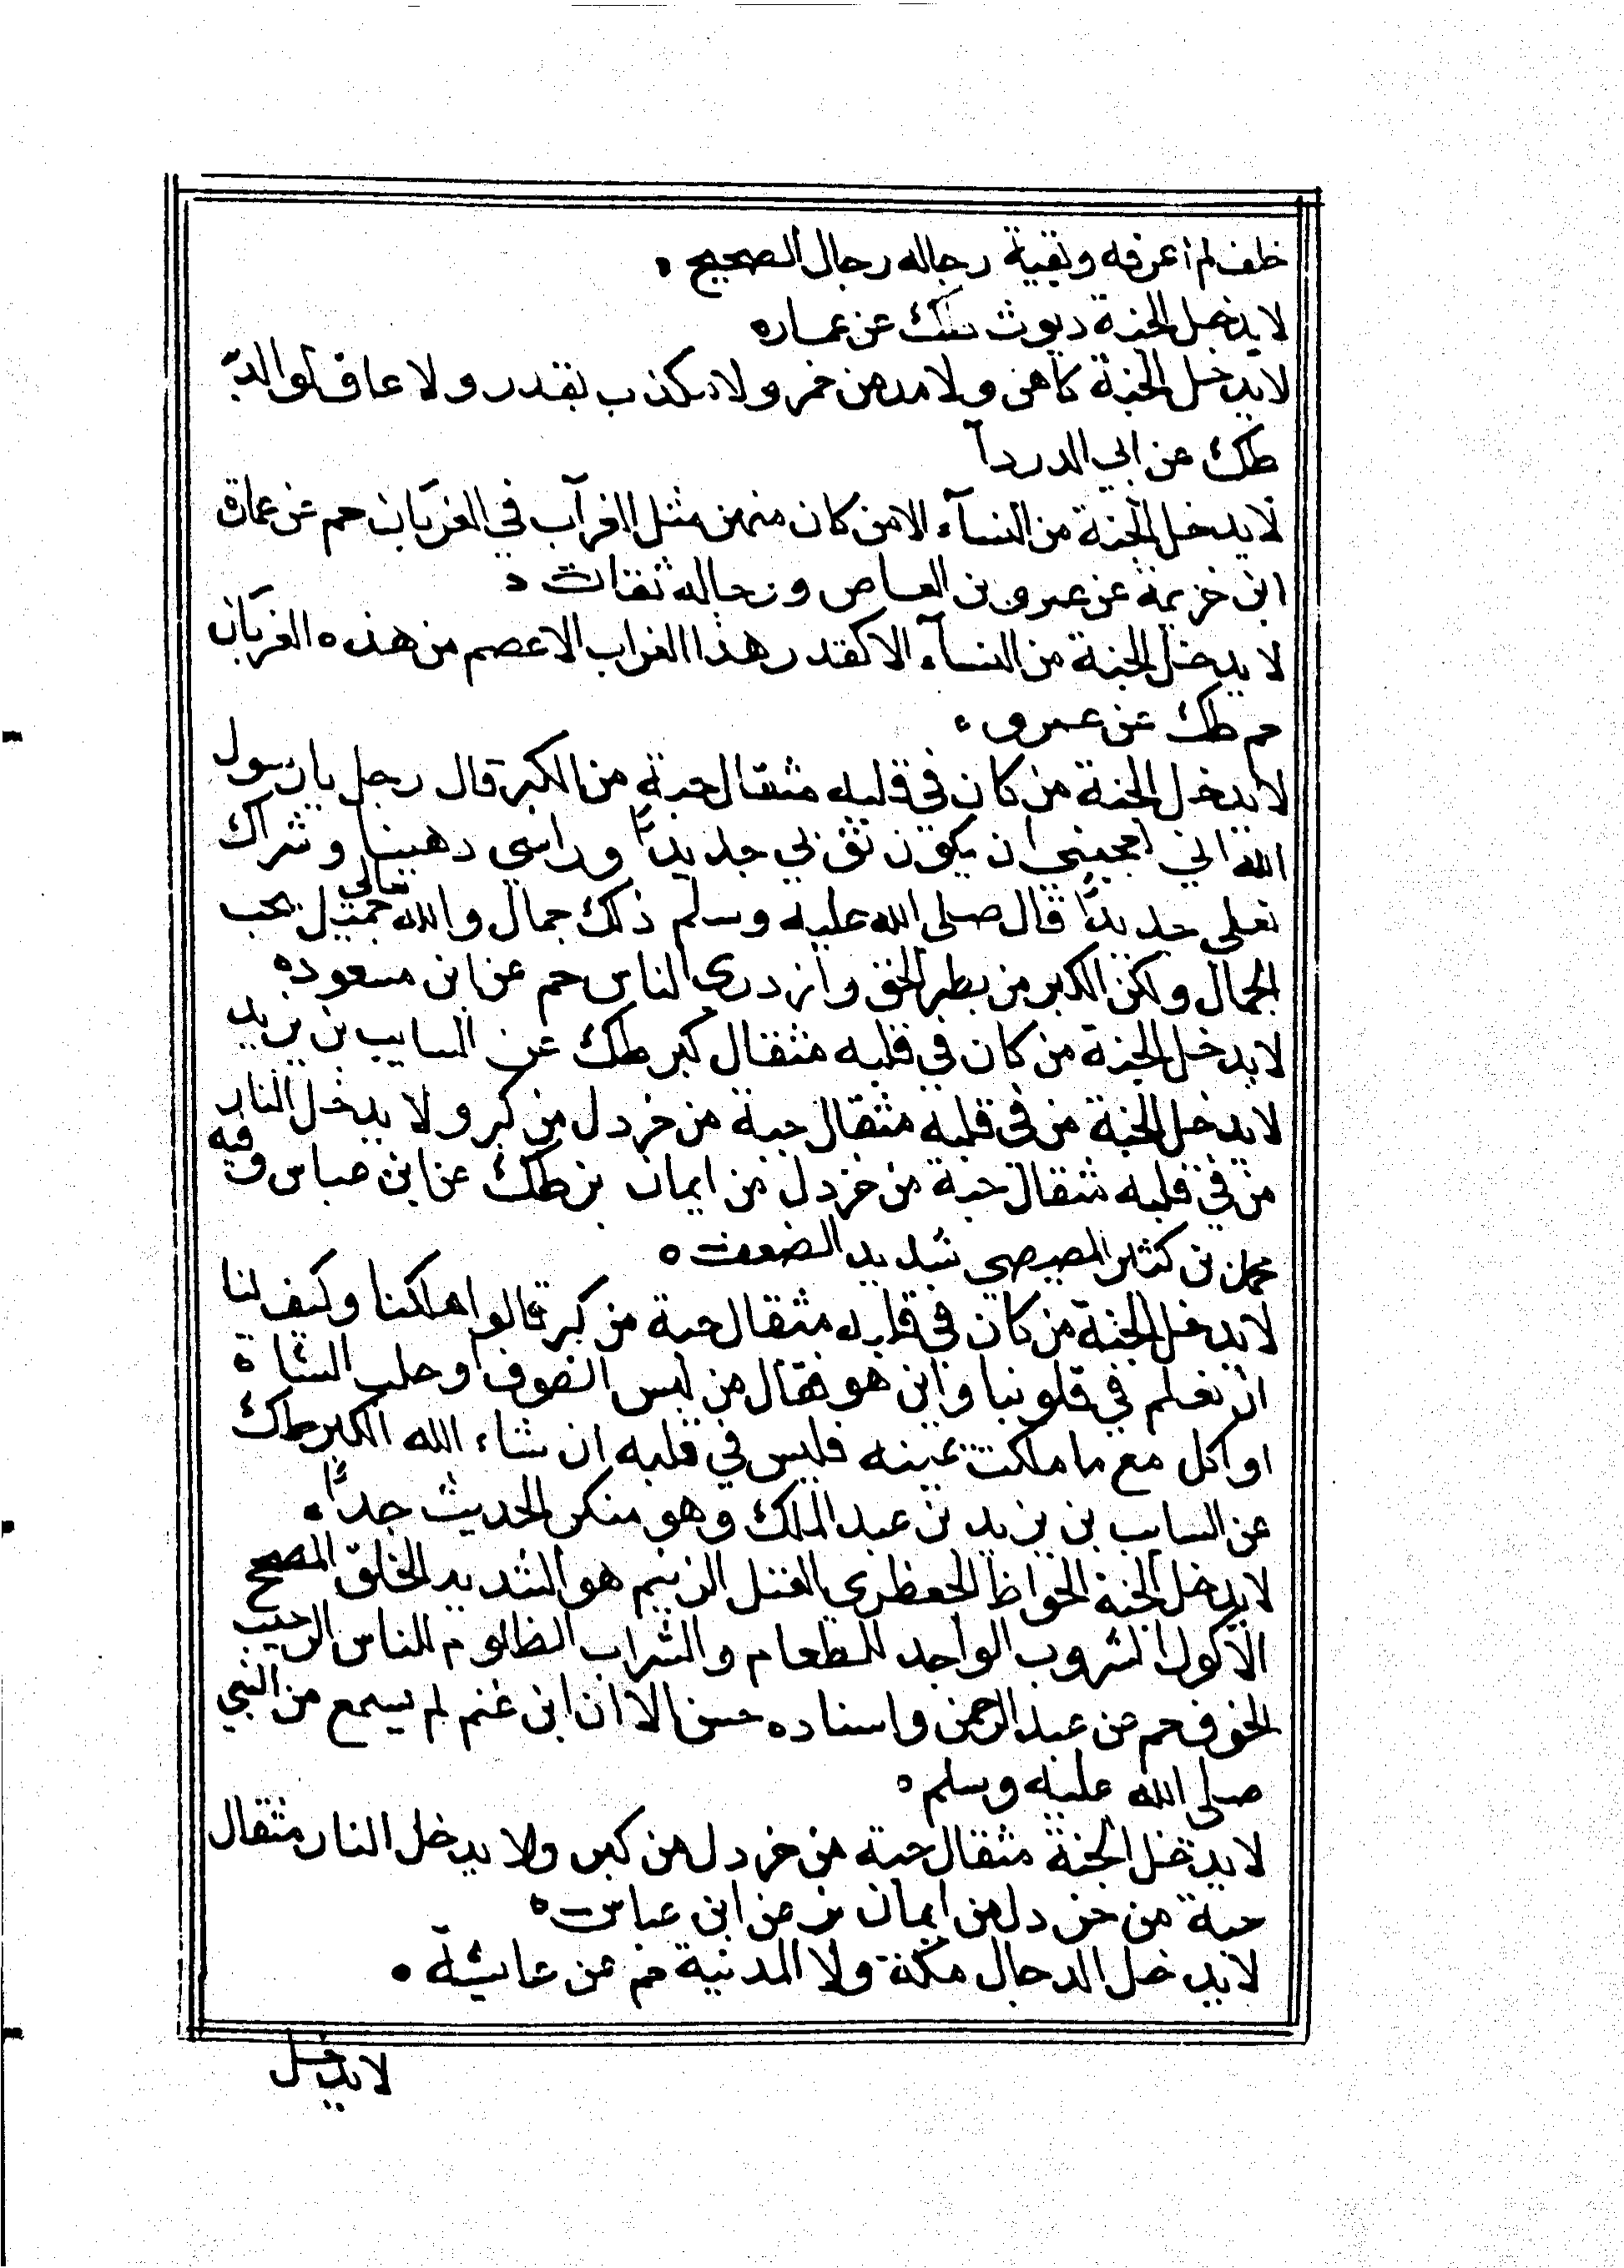 خلف لم أعرفه وبقية رجاله رجال الصحيح ه
لا يدخل الجنة ديوث طك عن عماره
لا يدخل الجنة كاهن ولا مدمن خمر ولا مكذب بقدر ولا عاق لوالديه
طك عن ابي الدردآ
لا يدخل الجنة من النسآء الا من كان منهن مثل الغرآب في الغربان حم عن عمارة
ابن خزيمة عن عمرو بن العاص ورجاله ثقات ه
لا يدخل الجنة من النسآء الا كقدر هذا الغراب الاعصم من هذه الغربان
حم طك عن عمرو ه
لا يدخل الجنة من كان في قلبه مثقال حبة من الكبر قال رجل يا رسول
الله اني اعجبني ان يكون ثوبي جديدًا وراسي دهينا وشراك
نعلي جديدًا قال صلى الله عليه وسلم ذلك جمال والله تعالى جميل يحب
الجمال ولكن الكبر من بطر الحق وازدرى الناس حم عن ابن مسعود ه
لا يدخل الجنة من كان في قلبه مثقال كبر طك عن السايب بن يزيد
لا يدخل الجنة من في قلبه مثقال حبة من خردل من كبر ولا يدخل النار
من في قلبه مثقال حبة من خردل من ايمان بز طك عن ابن عباس وفيه
محمد بن كثير المصيصي شديد الضعف ه
لا يدخل الجنة من كان في قلبه مثقال حبة من كبر قالوا هلكنا وكيف لنا
ان نعلم في قلوبنا واين هو فقال من لبس الصوف او حلب الشاة
او اكل مع ما ملكت يمينه فليس في قلبه ان شاء الله الكبر طك
عن السايب بن يزيد بن عبد الملك وهو منكر الحديث جدًا ه
لا يدخل الجنة الجواظ الجعظري العتل الزنيم هو الشديد الخلق المصحح
الاكول الشروب الواجد للطعام والشراب الظلوم للناس الرحيب
الجوف حم عن عبد الرحمن واسناده حسن الا ان ابن غنم لم يسمع من النبي
صلى الله عليه وسلم ه
لا يدخل الجنة مثقال حبة من خردل من كبر ولا يدخل النار مثقال
حبة من خردل من ايمان بز عن ابن عباس ه
لا يدخل الدجال مكة ولا المدينة حم عن عايشة ه
لا يدخل